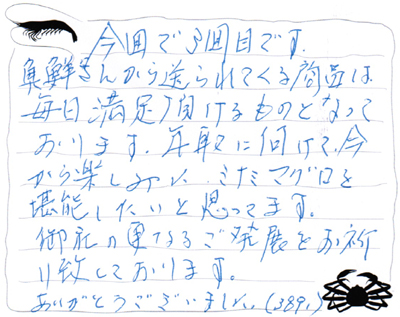 今回で3回目です.
魚鮮さんから送られてくる商品は
毎日満足頂けるものとなって
おります. 年取りに向けて.今
から楽しみい、ミナミマグロを
堪能したいと思ってます。
御社の更なるご発展をお祈
り致しております。
ありがとうございました。(389.)